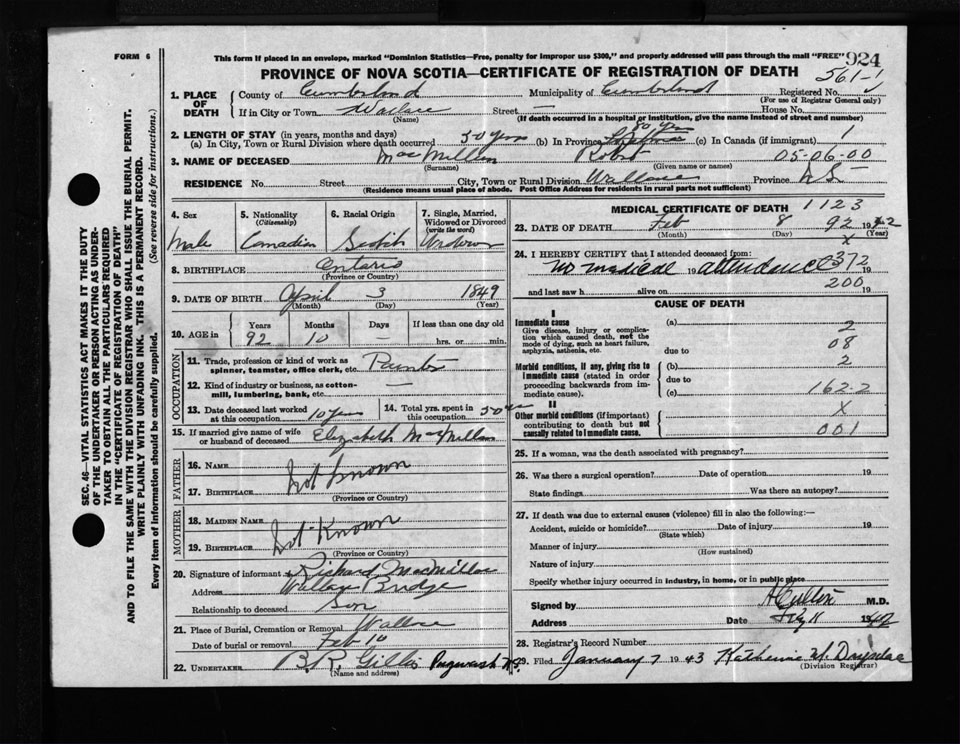 FORM 6
This form if placed in an envelope, marked "Dominion Statistics—Free, penalty for improper use $300," and properly addressed will pass through the mail "FREE" 924
PROVINCE OF NOVA SCOTIA—CERTIFICATE OF REGISTRATION OF DEATH 561-1
1. PLACE OF DEATH
County of Cumberland Municipality of Cumberland Registered No.
(For use of Registrar General only)
If in City or Town Wallace Street — House No.
(Name) (If death occurred in a hospital or institution, give the name instead of street and number)
2. LENGTH OF STAY (in years, months and days) 80 yrs
(a) In City, Town or Rural Division where death occurred 50 years (b) In Province (c) In Canada (if immigrant) 1
3. NAME OF DECEASED MacMillan Robert 05-06-00
(Surname) (Given name or names)
RESIDENCE No. Street City, Town or Rural Division Wallace Province N.S.
(Residence means usual place of abode. Post Office Address for residents in rural parts not sufficient)
4. Sex
Male
5. Nationality
(Citizenship)
Canadian
6. Racial Origin
Scotish
7. Single, Married,
Widowed or Divorced
(write the word)
Widower
8. BIRTHPLACE Ontario
(Province or Country)
9. DATE OF BIRTH April 3 1849
(Month) (Day) (Year)
10. AGE in
Years Months Days If less than one day old
92 10 — hrs. or min.
OCCUPATION
11. Trade, profession or kind of work as
spinner, teamster, office clerk, etc. Painter
12. Kind of industry or business, as cotton-
mill, lumbering, bank, etc. —
13. Date deceased last worked
at this occupation 10 years
14. Total yrs. spent in
this occupation 50 yrs
15. If married give name of wife
or husband of deceased Elizabeth MacMillan
FATHER
16. NAME Not known
17. BIRTHPLACE
(Province or Country)
MOTHER
18. MAIDEN NAME Not Known
19. BIRTHPLACE
(Province or Country)
20. Signature of informant Richard MacMillan
Address Wallace Bridge
Relationship to deceased Son
21. Place of Burial, Cremation or Removal Wallace
Date of burial or removal Feb 10
22. UNDERTAKER B.R. Gillis Pugwash N.S.
(Name and address)
MEDICAL CERTIFICATE OF DEATH 1123
23. DATE OF DEATH Feb 8 92 1942
(Month) (Day) (Year)
x
24. I HEREBY CERTIFY that I attended deceased from:
No medical 19 attendence 372 19
200
and last saw h alive on 19
CAUSE OF DEATH
I
Immediate cause
Give disease, injury or complica-
tion which caused death, not the
mode of dying, such as heart failure,
asphyxia, asthenia, etc.
(a) 2
08
due to
Morbid conditions, if any, giving rise to
immediate cause (stated in order
proceeding backwards from im-
mediate cause).
(b) 2
due to
(c) 162-2
II
Other morbid conditions (if important)
contributing to death but not
causally related to immediate cause.
X
001
25. If a woman, was the death associated with pregnancy?
26. Was there a surgical operation? Date of operation 19
State findings Was there an autopsy?
27. If death was due to external causes (violence) fill in also the following:—
Accident, suicide or homicide? Date of injury 19
(State which)
Manner of injury
(How sustained)
Nature of injury
Specify whether injury occurred in industry, in home, or in public place
Signed by M.D.
Address Date 11 1942
28. Registrar's Record Number
29. Filed January 7 1943 Katherine
(Division Registrar)
SEC. 46—VITAL STATISTICS ACT MAKES IT THE DUTY
OF THE UNDERTAKER OR PERSON ACTING AS UNDER-
TAKER TO OBTAIN ALL THE PARTICULARS REQUIRED
IN THE "CERTIFICATE OF REGISTRATION OF DEATH"
AND TO FILE THE SAME WITH THE DIVISION REGISTRAR WHO SHALL ISSUE THE BURIAL PERMIT.
WRITE PLAINLY WITH UNFADING INK. THIS IS A PERMANENT RECORD.
Every item of information should be carefully supplied. (See reverse side for instructions.)